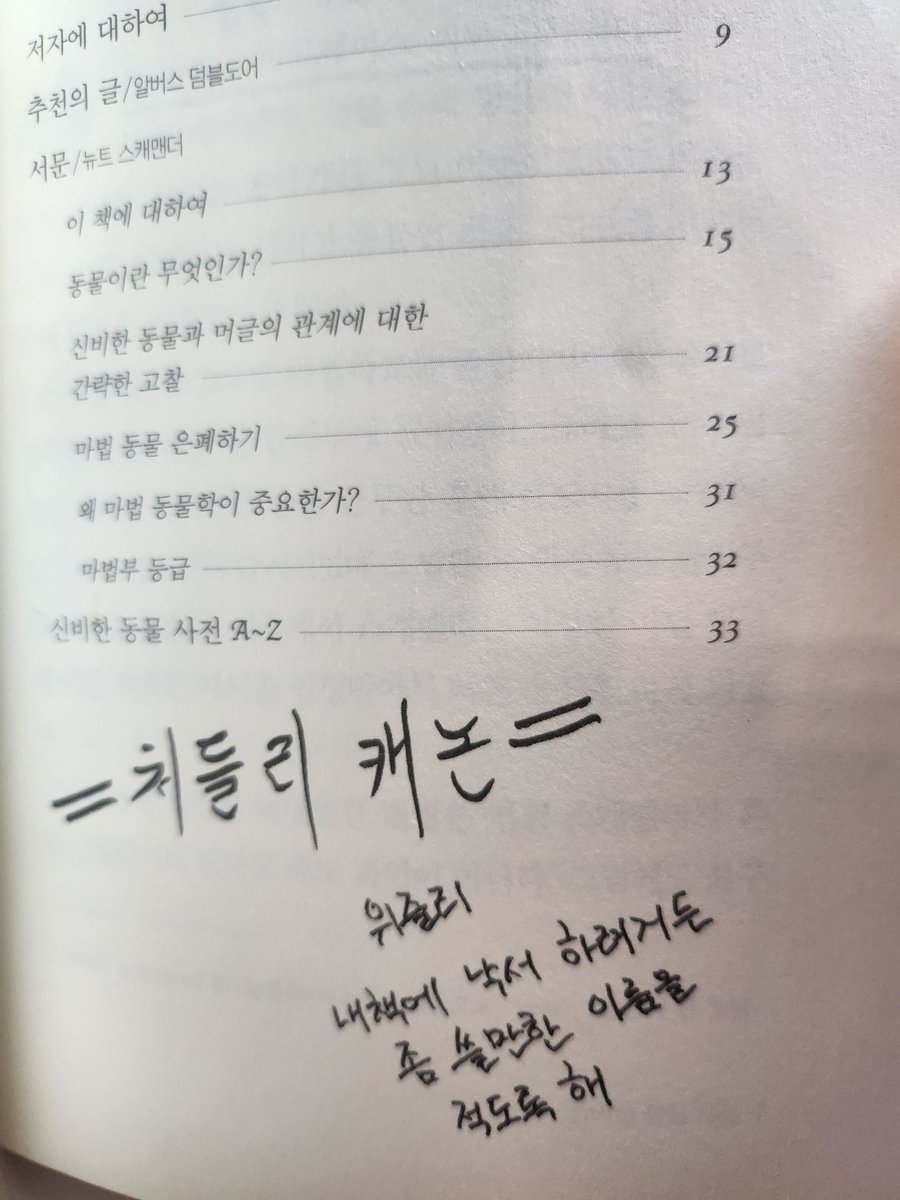 저자에 대하여
추천의 글/알버스 덤블도어 9
서문/뉴트 스캐맨더
이 책에 대하여 13
동물이란 무엇인가? 15
신비한 동물과 머글의 관계에 대한
간략한 고찰 21
마법 동물 은폐하기 25
왜 마법 동물학이 중요한가? 31
마법부 등급 32
신비한 동물 사전 A~Z 33
=처들리 캐논=
위즐리
내책에 낙서 하려거든
좀 쓸만한 이름을
적도록 해